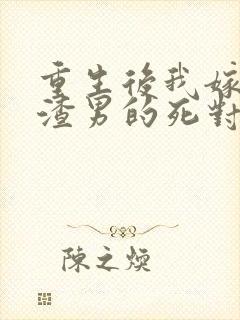 重生後我嫁
渣男的死對
陳之煥